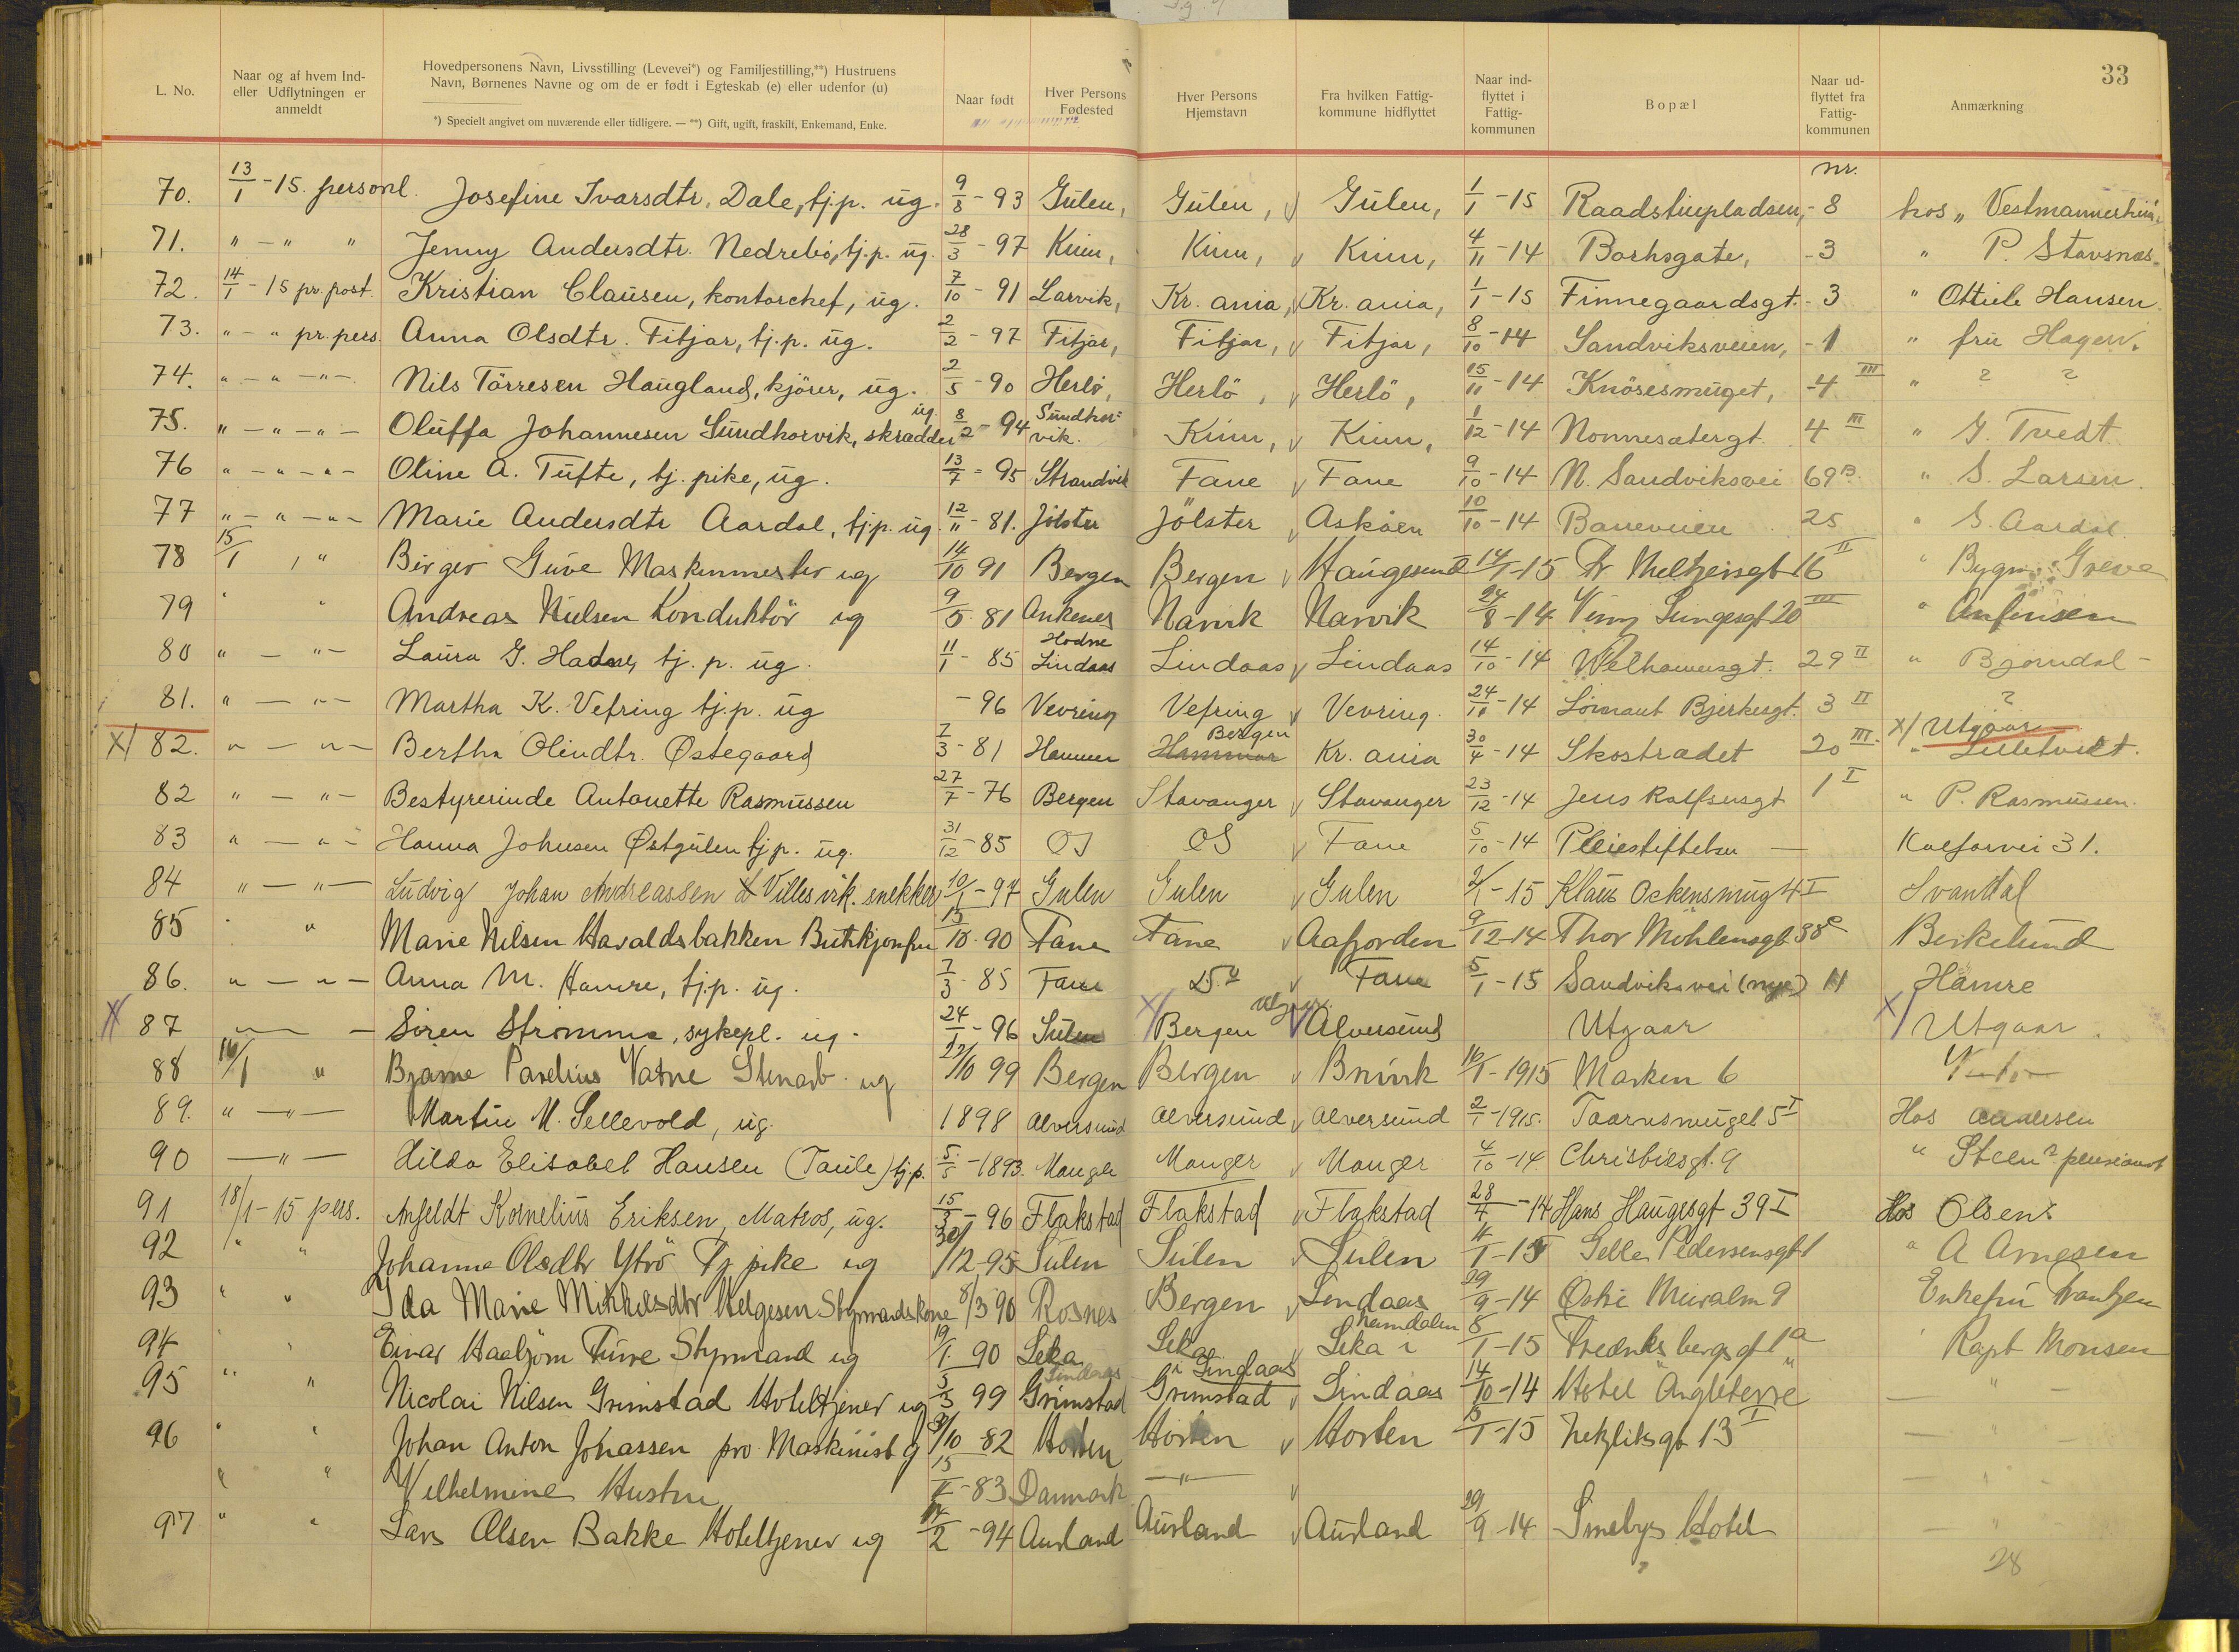 33
L. No.
Naar og af hvem Ind- eller Udflytningen er anmeldt
Hovedpersonens Navn, Livsstilling (Levevei*) og Familjestilling,**) Hustruens Navn, Børnenes Navne og om de er født i Egteskab (e) eller udenfor (u)
*) Specielt angivet om nuværende eller tidligere. — **) Gift, ugift, fraskilt, Enkemand, Enke.
Naar født
Hver Persons Fødested
Hver Persons Hjemstavn
Fra hvilken Fattig- kommune hidflyttet
Naar ind- flyttet i Fattig- kommunen
Bopæl
Naar ud- flyttet fra Fattig- kommunen
Anmærkning
nr.
70. 13/1-15. personl. Josefine Ivarsdtr. Dale, tj.p. ug. 9/8-93 Gulen, Gulen, v Gulen, 1/1-15 Raadstuepladsen, -8 hos „ Vestmannerheim.
71. " - " " Jenny Andersdtr. Nedrebö, tj.p. ug. 28/3-97 Kinn, Kinn, v Kinn, 4/11-14 Barhsgate, -3 " P. Stavsnes.
72. 14/1-15 pr. post. Kristian Clausen, kontorchef, ug. 7/10-91 Larvik, Kr. ania, v Kr. ania, 1/1-15 Finnegaardsgt. -3 " Ottiele Hansen
73. " - " pr. pers. Anna Olsdtr. Fitjar, tj.p. ug. 2/2-97 Fitjar, Fitjar, v Fitjar, 8/10-14 Sandviksveien, -1 " fru Hagen.
74. " - " - " - Nils Törresen Haugland, kjörer, ug. 2/5-90 Herlö, Herlö, v Herlö, 15/11-14 Knösesmuget, -4 III " ? ?
75. " - " - " - Oluffa Johannesen Sundhorvik, skradder ug. 8/2-94 Sundhor- vik. Kinn, v Kinn, 1/12-14 Nonnesætergt. 4 III " G. Tvedt
76 " - " - " - Oline A. Tufte, tj. pike, ug. 13/7-95 Strandvik Fane v Fane 9/10-14 N. Sandviksvei 69 B. " S. Larsen.
77 " - " - " - Marie Andersdtr Aardal, tj.p. ug. 12/11-81. Jölster Jölster v Askøen 10/10-14 Baneveien 25 " S. Aardal
78 15/1 , " Birger Greve Maskinmester ug 14/10 91 Bergen Bergen v Haugesund 14/1-15 Fr Meltzersgt 16 II " Bygm. Greve
79 " " Andreas Nielsen Konduktör ug 9/5 81 Ankenes Narvik Narvik 24/8-14 Vinny Lungesgt 20 III " Anfinsen
80 " - " - Laura G. Hadne, tj. p. ug. 11/1-85 Hodne Lindaas Lindaas v Lindaas 14/10-14 Welhavensgt. 29 II " Bjorndal -
81. " - " - Martha K. Vefring tj.p. ug -96 Vevring Vefring v Vevring. 24/10-14 Bjerkesgt. 3 II ?
X/ 82. " - " - Bertha Olindtr. Østegaard 7/3-81 Hammer Hammer Bergen Kr. ania 30/4-14 Skostrædet 20 III X/ Utgaar " Lilletvedt.
82 " - " - Bestyrerinde Antonette Rasmussen 27/7-76 Bergen Stavanger v Stavanger 23/12-14 Jens Rolfsensgt 1 I " P. Rasmussen.
83 " - " - Hanna Johnsen Østgulen tj p. ug. 31/12-85 OS OS v Fane 5/10-14 Pleiestiftelsen — Kalfarvei 31.
84 " - " - Ludvig Johan Andreassen Villesvik. snekker 10/1-97 Gulen Gulen v Gulen 2/1-15 Klaus Ockensmug 4 I Svandal
85 " " Marie Nilsen Haraldsbakken Butikjomfru 15/10-90 Fane Fane v Aafjorden 9/12-14 Thor Möhlensgt 38 c Birkelund
86. " - " - Anna M. Hamre, tj.p. ug. 7/3-85 Fane D.º v Fane 5/1-15 Sandviksvei (nye) 11 Hamre
X/ 87 " - Sören Strömme, sykepl. ug. 24/1-96 Sulen X/ Bergen utgaar. v Alversund Utgaar X/ Utgaar.
88 16/1 " Bjarne Parelius Vatne Stenarb ug 27/10 99 Bergen Bergen v Bruvik 16/1-1915 Marken 6
89. " - " - Martin M. Sellevold, ug. 1898 Alversund Alversund v Alversund 2/1-1915. Taarnsmuget 5 I Hos Andersen
90 - " - Hilda Elisabet Hansen (Taule) tj.p. 5/5-1893. Manger Manger v Manger 4/10-14 Christiesgt. 9 " Steen pensionat
91 18/1-15 pers. Anfeldt Kornelius Eriksen, Matros, ug. 15/8-96 Flakstad Flakstad v Flakstad 28/4-14 Hans Haugesgt 39 I Hos Olsen
92 " " Johanne Olsdtr Ytrö Tj pike ug 30/12-95 Sulen Sulen v Sulen 4/1-15 Gelle Pedersensgt 1 " A Arnesen
93 " " Ida Marie Mikkelsdtr Helgesen Styrmandskone 8/3 90 Rosnes Bergen v Lindaas 29/9-14 Øvre Muralm 9 Enkefru Frantzen
94 " " Einar Haabjörn Furre Styrmand ug 19/1 90 Leka Leka v Leka i Namdalen 8/1-15 Fredriksbergsgt 1a " Kapt Monsen
95 " " Nicolai Nilsen Grimstad Hoteltjener ug 5/3 99 Grimstad Lindaas Grimstad i Lindaas v Lindaas 14/10-14 Hotel "Angleterre" — " —
96 " " Johan Anton Johassen pro. Maskinist g 9/10-82 Horten Horten v Horten 5/1-15 Netzlitsgt 13 I — " —
" " Vilhelmine Hustru 15/11-83 Danmark — " — v — " —
97 " " Lars Olsen Bakke Hoteltjener ug 14/2-94 Aurland Aurland v Aurland 29/9-14 Smebys Hotel — " —
28